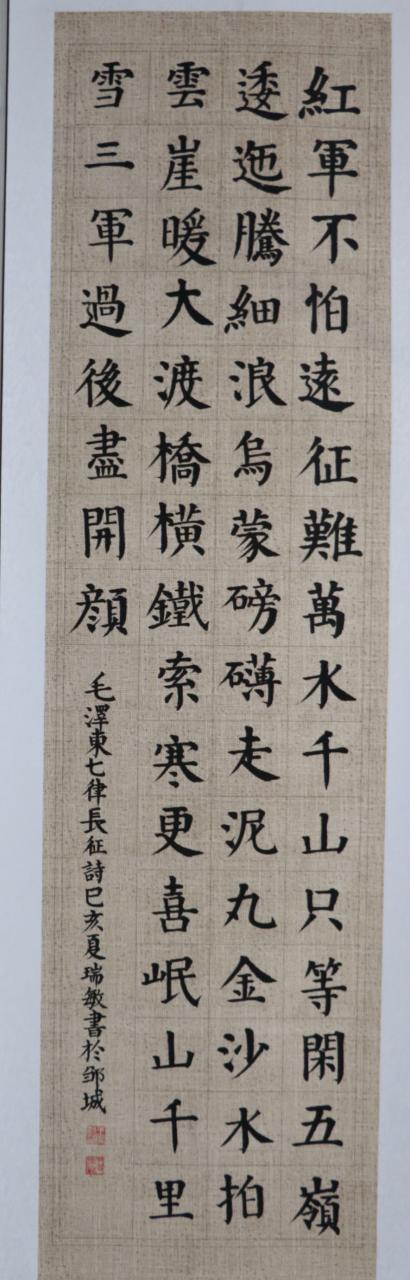 紅軍不怕遠征難萬水千山只等閑五嶺
逶迤騰細浪烏蒙磅礴走泥丸金沙水拍
雲崖暖大渡橋橫鐵索寒更喜岷山千里
雪三軍過後盡開顔
毛澤東七律長征詩巳亥夏瑞敏書於邹城